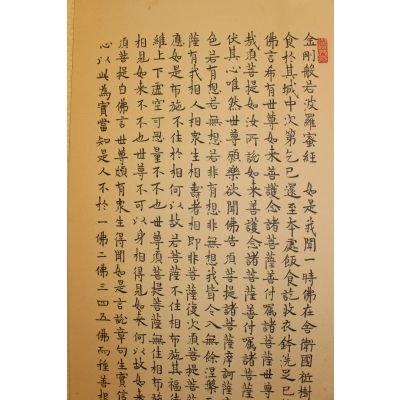 金剛般若波羅蜜經 如是我聞一時佛在舍衛國祇樹
食於其城中次第乞已還至本處飯食訖收衣鉢洗足已
佛言希有世尊如來善護念諸菩薩善付囑諸菩薩世尊
哉須菩提如汝所說如來善護念諸菩薩善付囑諸菩薩
伏其心唯然世尊願樂欲聞佛告須菩提諸菩薩摩訶薩
色若有想若無想若非有想非無想我皆令入無餘涅槃
薩有我相人相衆生相壽者相即非菩薩復次須菩提
應如是布施不住於相何以故若菩薩不住相布施其福德
維上下虛空可思量不不也世尊須菩提菩薩無住相布施
相見如來不不也世尊不可以身相得見如來何以故如來
須菩提白佛言世尊頗有衆生得聞如是言說章句生實信
心以此為實當知是人不於一佛二佛三四五佛而種善根